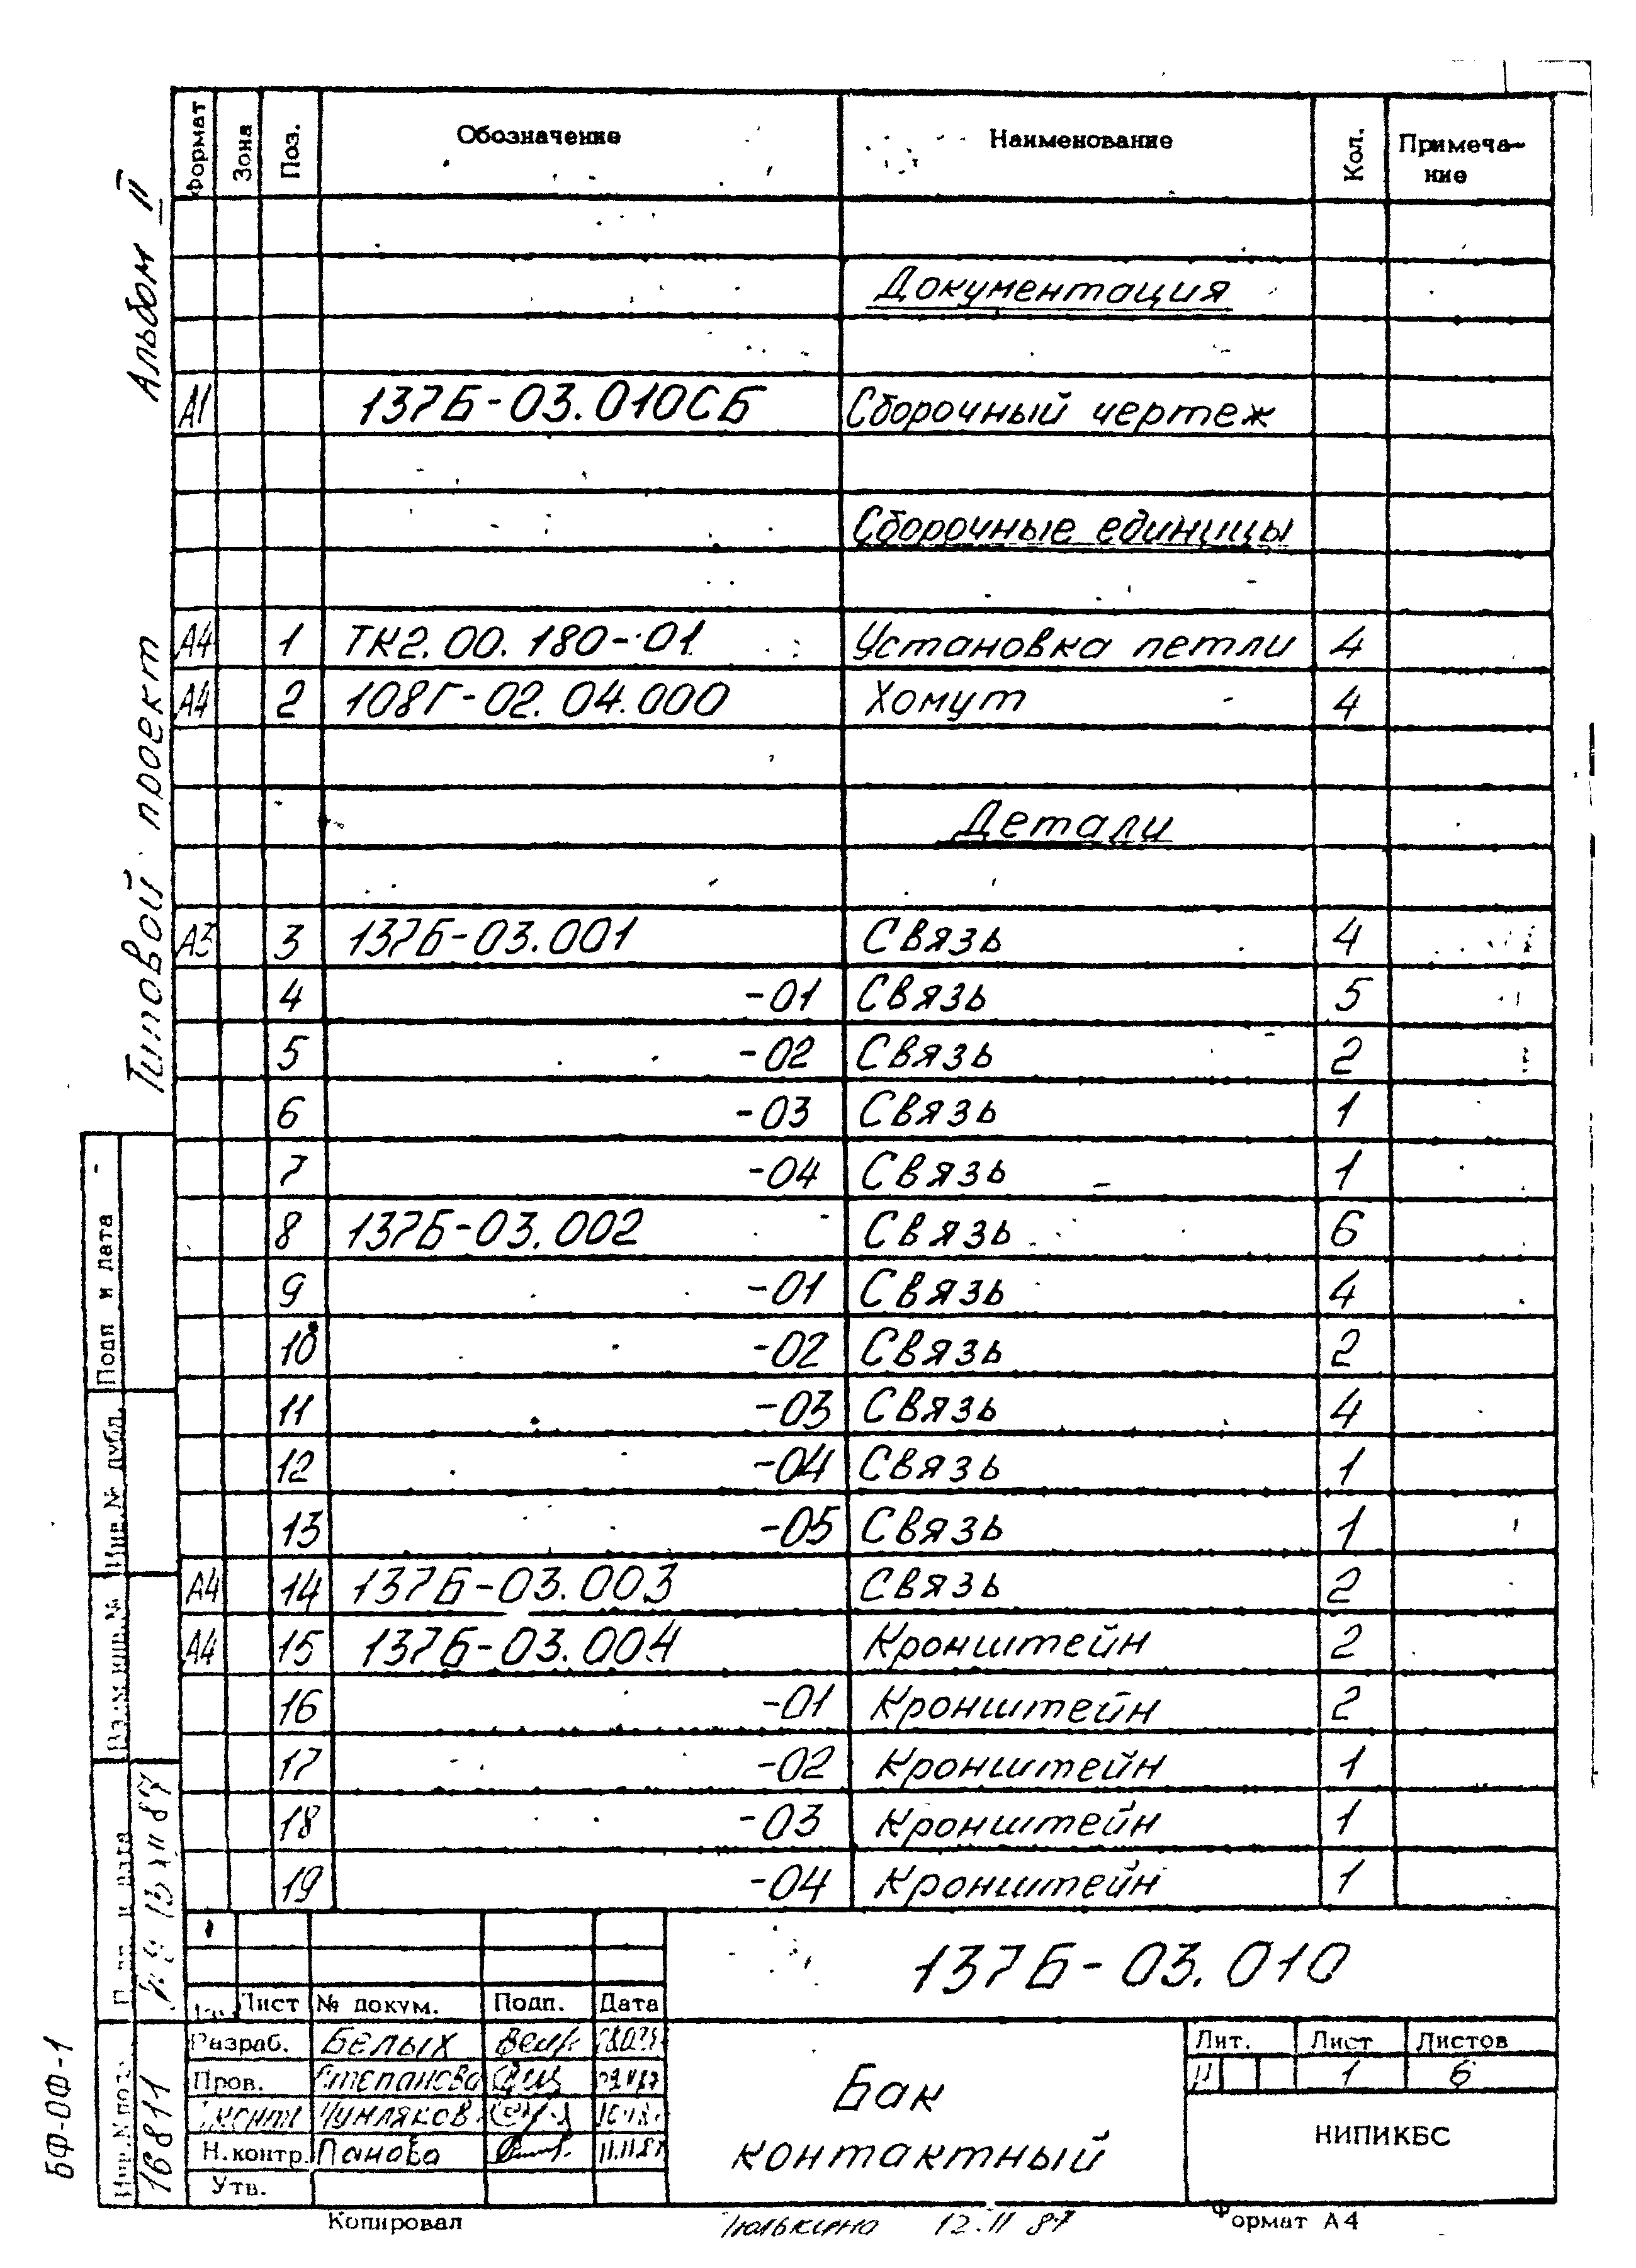 Формат Зона Поз. Обозначение Наименование Кол. Примеча-
ние
Документация
А1 137Б-03.010СБ Сборочный чертеж
Сборочные единицы
А4 1 ТК2.00.180-01 Установка петли 4
А4 2 108Г-02.04.000 Хомут 4
Детали
А3 3 137Б-03.001 Связь 4
4 -01 Связь 5
5 -02 Связь 2
6 -03 Связь 1
7 -04 Связь 1
8 137Б-03.002 Связь 6
9 -01 Связь 4
10 -02 Связь 2
11 -03 Связь 4
12 -04 Связь 1
13 -05 Связь 1
А4 14 137Б-03.003 Связь 2
А4 15 137Б-03.004 Кронштейн 2
16 -01 Кронштейн 2
17 -02 Кронштейн 1
18 -03 Кронштейн 1
19 -04 Кронштейн 1
Альбом II
Типовой проект
Подп и дата
Инв.№ дубл.
16811
БФ-ОФ-1
137Б-03.010
Лист № докум. Подп. Дата
Разраб. Белых
Пров. Степанова
Н.контр. Панова
Утв.
Бак
контактный
Лит. Лист Листов
1 6
НИПИКБС
Копировал 12.11.87 Формат А4